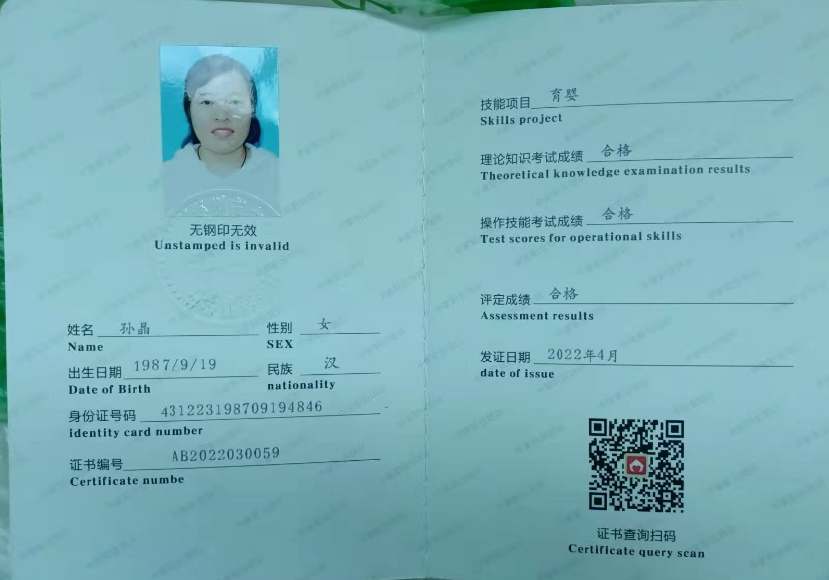 无钢印无效
Unstamped is invalid
姓名 孙晶 性别 女
Name SEX
出生日期 1987/9/19 民族 汉
Date of Birth nationality
身份证号码 431223198709194846
identity card number
证书编号 AB2022030059
Certificate numbe
技能项目 育婴
Skills project
理论知识考试成绩 合格
Theoretical knowledge examination results
操作技能考试成绩 合格
Test scores for operational skills
评定成绩 合格
Assessment results
发证日期 2022年4月
date of issue
证书查询扫码
Certificate query scan